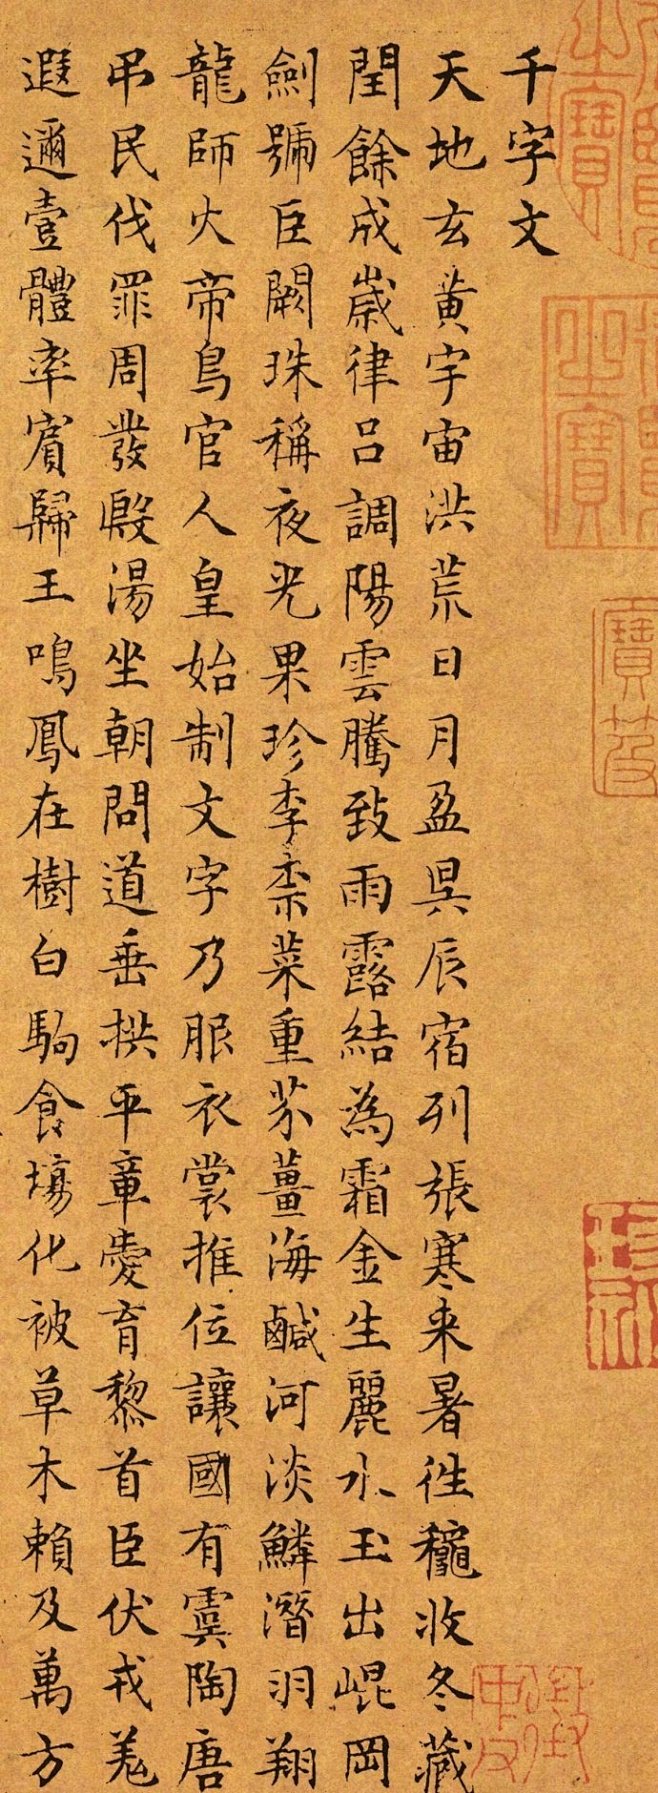 千字文
天地玄黃宇宙洪荒日月盈昃辰宿列張寒來暑往穐收冬藏
閏餘成歲律呂調陽雲騰致雨露結為霜金生麗水玉出崐岡
劍號臣闕珠稱夜光果珍李柰菜重芥薑海鹹河淡鱗潛羽翔
龍師火帝鳥官人皇始制文字乃服衣裳推位讓國有虞陶唐
弔民伐罪周發殷湯坐朝問道垂拱平章愛育黎首臣伏戎羌
遐邇壹體率賓歸王鳴鳳在樹白駒食場化被草木賴及萬方